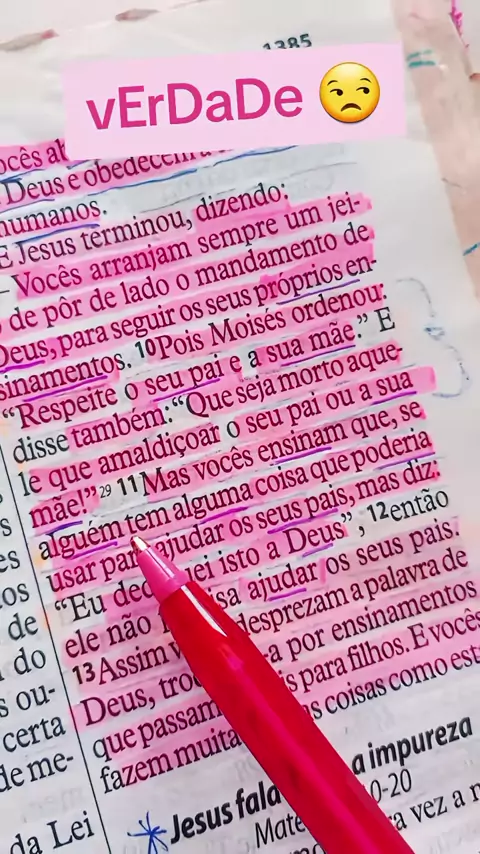 1385
vErDaDe 😒
ocês
Deus e obedecem a
humanos.
E Jesus terminou, dizendo:
– Vocês arranjam sempre um jei-
de pôr de lado o mandamento de
Deus, para seguir os seus próprios en-
sinamentos. 10Pois Moisés ordenou:
“Respeite o seu pai e a sua mãe.” E
disse também: “Que seja morto aque-
le que amaldiçoar o seu pai ou a sua
mãe!” 29 11Mas vocês ensinam que, se
alguém tem alguma coisa que poderia
usar para ajudar os seus pais, mas diz:
“Eu dei isto a Deus”, 12então
ele não sa ajudar os seus pais.
13Assim v desprezam a palavra de
Deus, tro a por ensinamentos
que passam s para filhos. E vocês
fazem muita s coisas como est
Jesus fala a impureza
Mate 0-20
ra vez a
s
es
os
de
do
s ou-
certa
de me-
da Lei